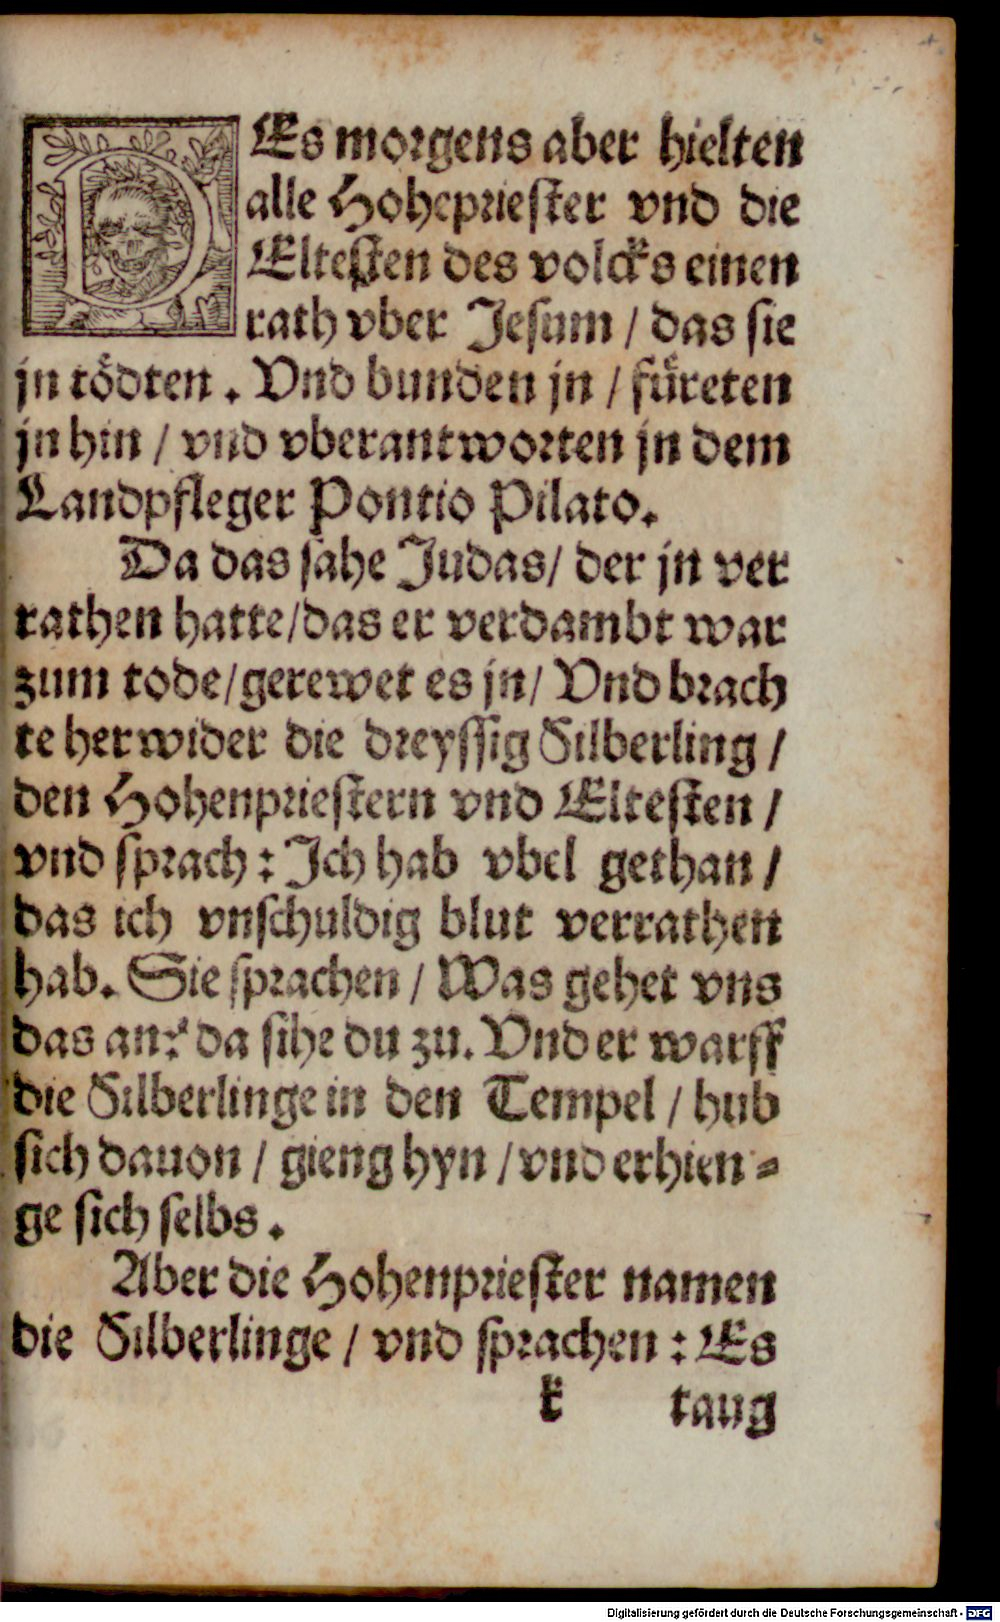 DEs morgens aber hielten
alle Hohepriester vnd die
Eltesten des volcks einen
rath vber Jesum / das sie
jn tödten. Vnd bunden jn / füreten
jn hin / vnd vberantworten jn dem
Landpfleger Pontio Pilato.
Da das sahe Judas / der jn ver
rathen hatte / das er verdambt war
zum tode / gerewet es jn / Vnd brach
te herwider die dreyssig Silberling /
den Hohenpriestern vnd Eltesten /
vnd sprach: Ich hab vbel gethan /
das ich vnschuldig blut verrathen
hab. Sie sprachen / Was gehet vns
das an? da sihe du zu. Vnd er warff
die Silberlinge in den Tempel / hub
sich dauon / gieng hyn / vnd erhien=
ge sich selbs.
Aber die Hohenpriester namen
die Silberlinge / vnd sprachen: Es
k taug
Digitalisierung gefördert durch die Deutsche Forschungsgemeinschaft - DFG